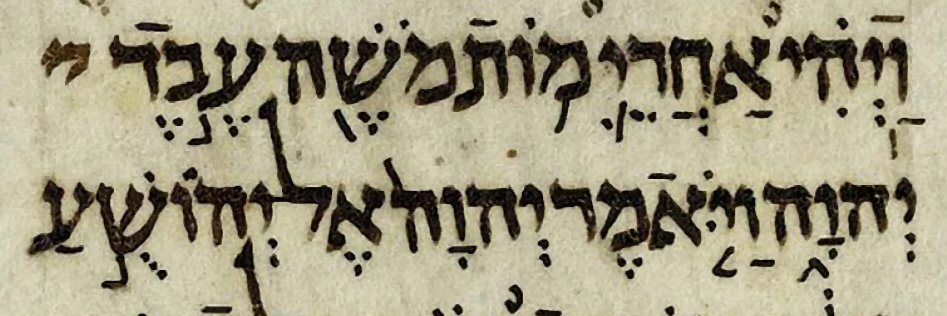 וַיְהִ֗י אַחֲרֵ֛י מ֥וֹת מֹשֶׁ֖ה עֶ֣בֶד י
יְהוָ֑ה וַיֹּ֤אמֶר יְהוָה֙ אֶל־יְהוֹשֻׁ֣עַ